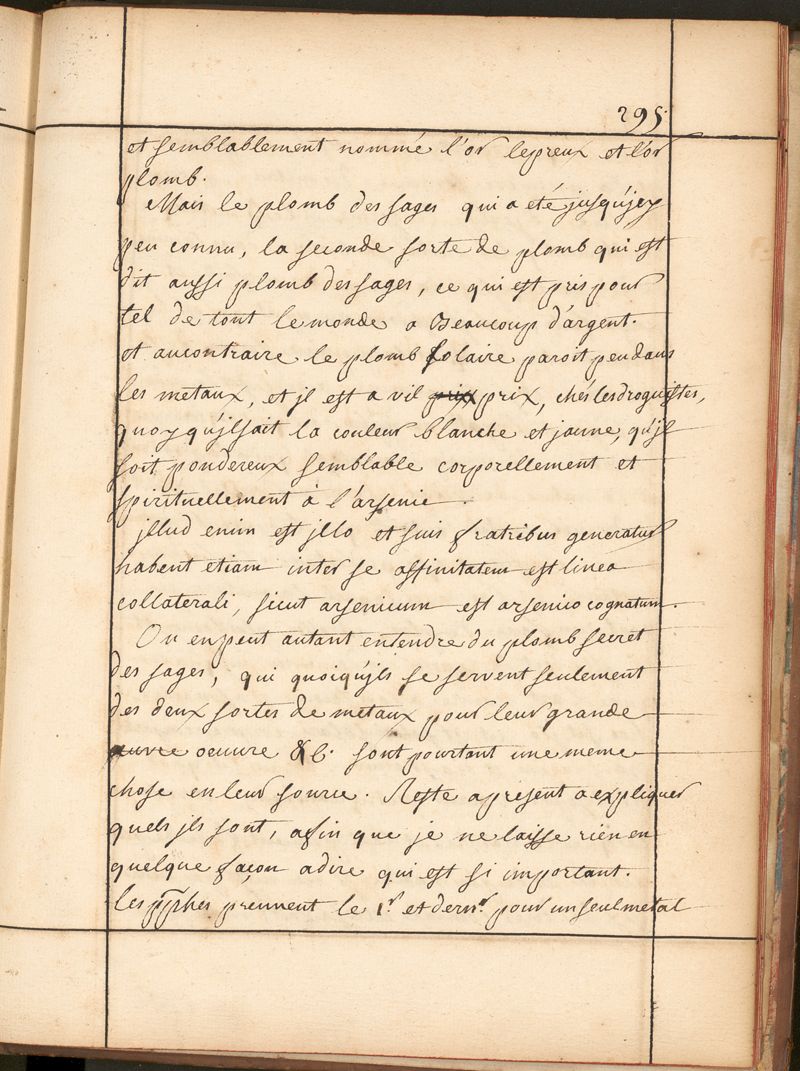 295.
et semblablement nommé l'or lepreux et l'or
plomb.
Mais le plomb des sages qui a eté jusqu'jcy
peu connu, la seconde sorte de plomb qui est
dit aussi plomb des sages, ce qui est pris pour
tel de tout le monde a Beaucoup d'argent.
et aucontraire le plomb solaire paroit peu dans
les metaux, et jl est a vil prix prix, chés les droguistes,
quoy qu'jl sait la couleur blanche et jaune, qu'jl
soit pondereux semblable corporellement et
spirituellement à l'arsenic.
jllud enim est jllo et suis fratribus generatur
habent etiam inter se affinitatem est linea
collaterali, sicut arsenicum est arsenico cognatum.
On en peut autant entendre du plomb secret
des sages, qui quoiqu'jls se servent seulement
des deux sortes de metaux pour leur grande
œuvre oeuvre &c. sont pourtant une meme
chose en leur source. Reste apresent a expliquer
quels jls sont, afin que je ne laisse rien en
quelque façon adire qui est si important.
les pphes prennent le 1.r et dern.r pour un seul metal